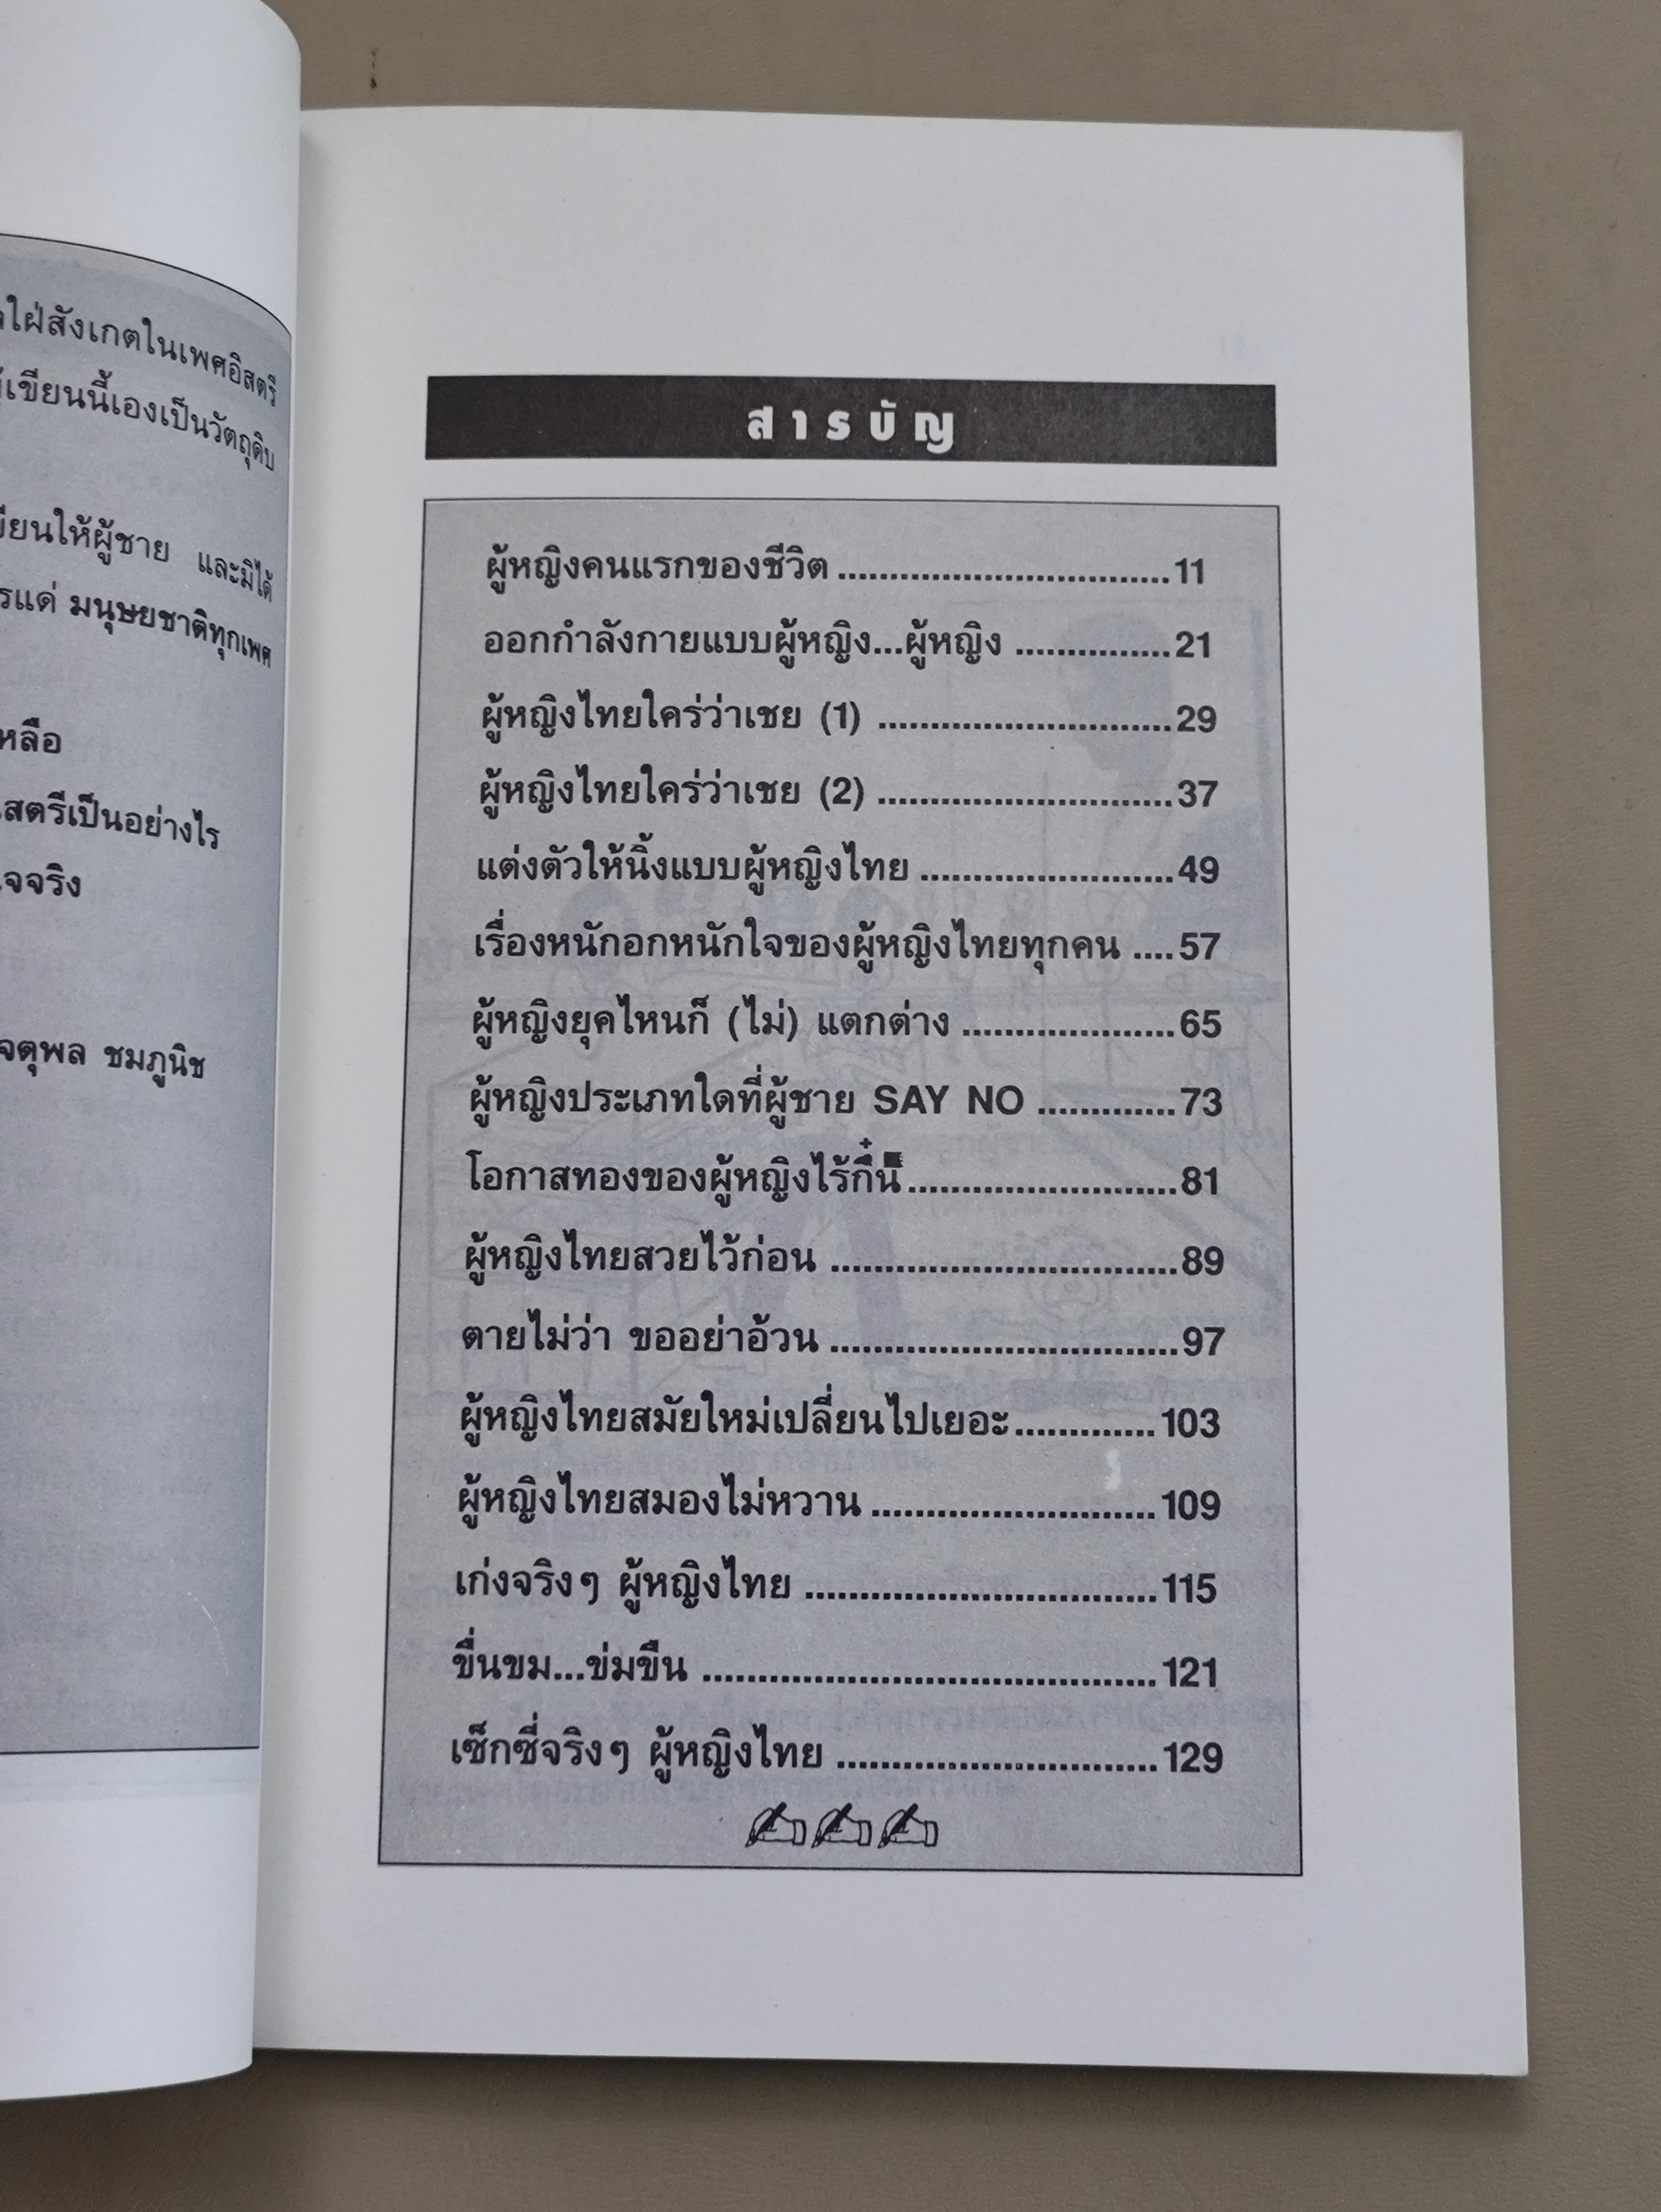 ใฝ่สังเกตในเพศอิสตรี
เขียนนี้เองเป็นวัตถุดิบ
ให้ผู้ชาย และมิได้
แด่ มนุษยชาติทุกเพศ
สตรีเป็นอย่างไร
จริง
จตุพล ชมภูนิช
สารบัญ
ผู้หญิงคนแรกของชีวิต ................................ 11
ออกกำลังกายแบบผู้หญิง...ผู้หญิง ............... 21
ผู้หญิงไทยใคร่ว่าเชย (1) ............................ 29
ผู้หญิงไทยใคร่ว่าเชย (2) ............................ 37
แต่งตัวให้นิ้งแบบผู้หญิงไทย ........................ 49
เรื่องหนักอกหนักใจของผู้หญิงไทยทุกคน .... 57
ผู้หญิงยุคไหนก็ (ไม่) แตกต่าง .................... 65
ผู้หญิงประเภทใดที่ผู้ชาย SAY NO ............. 73
โอกาสทองของผู้หญิงไร้ ......................... 81
ผู้หญิงไทยสวยไว้ก่อน ................................. 89
ตายไม่ว่า ขออย่าอ้วน ................................. 97
ผู้หญิงไทยสมัยใหม่เปลี่ยนไปเยอะ ............. 103
ผู้หญิงไทยสมองไม่หวาน .......................... 109
เก่งจริงๆ ผู้หญิงไทย ................................. 115
ขื่นขม...ข่มขืน ........................................... 121
เซ็กซี่จริงๆ ผู้หญิงไทย .............................. 129